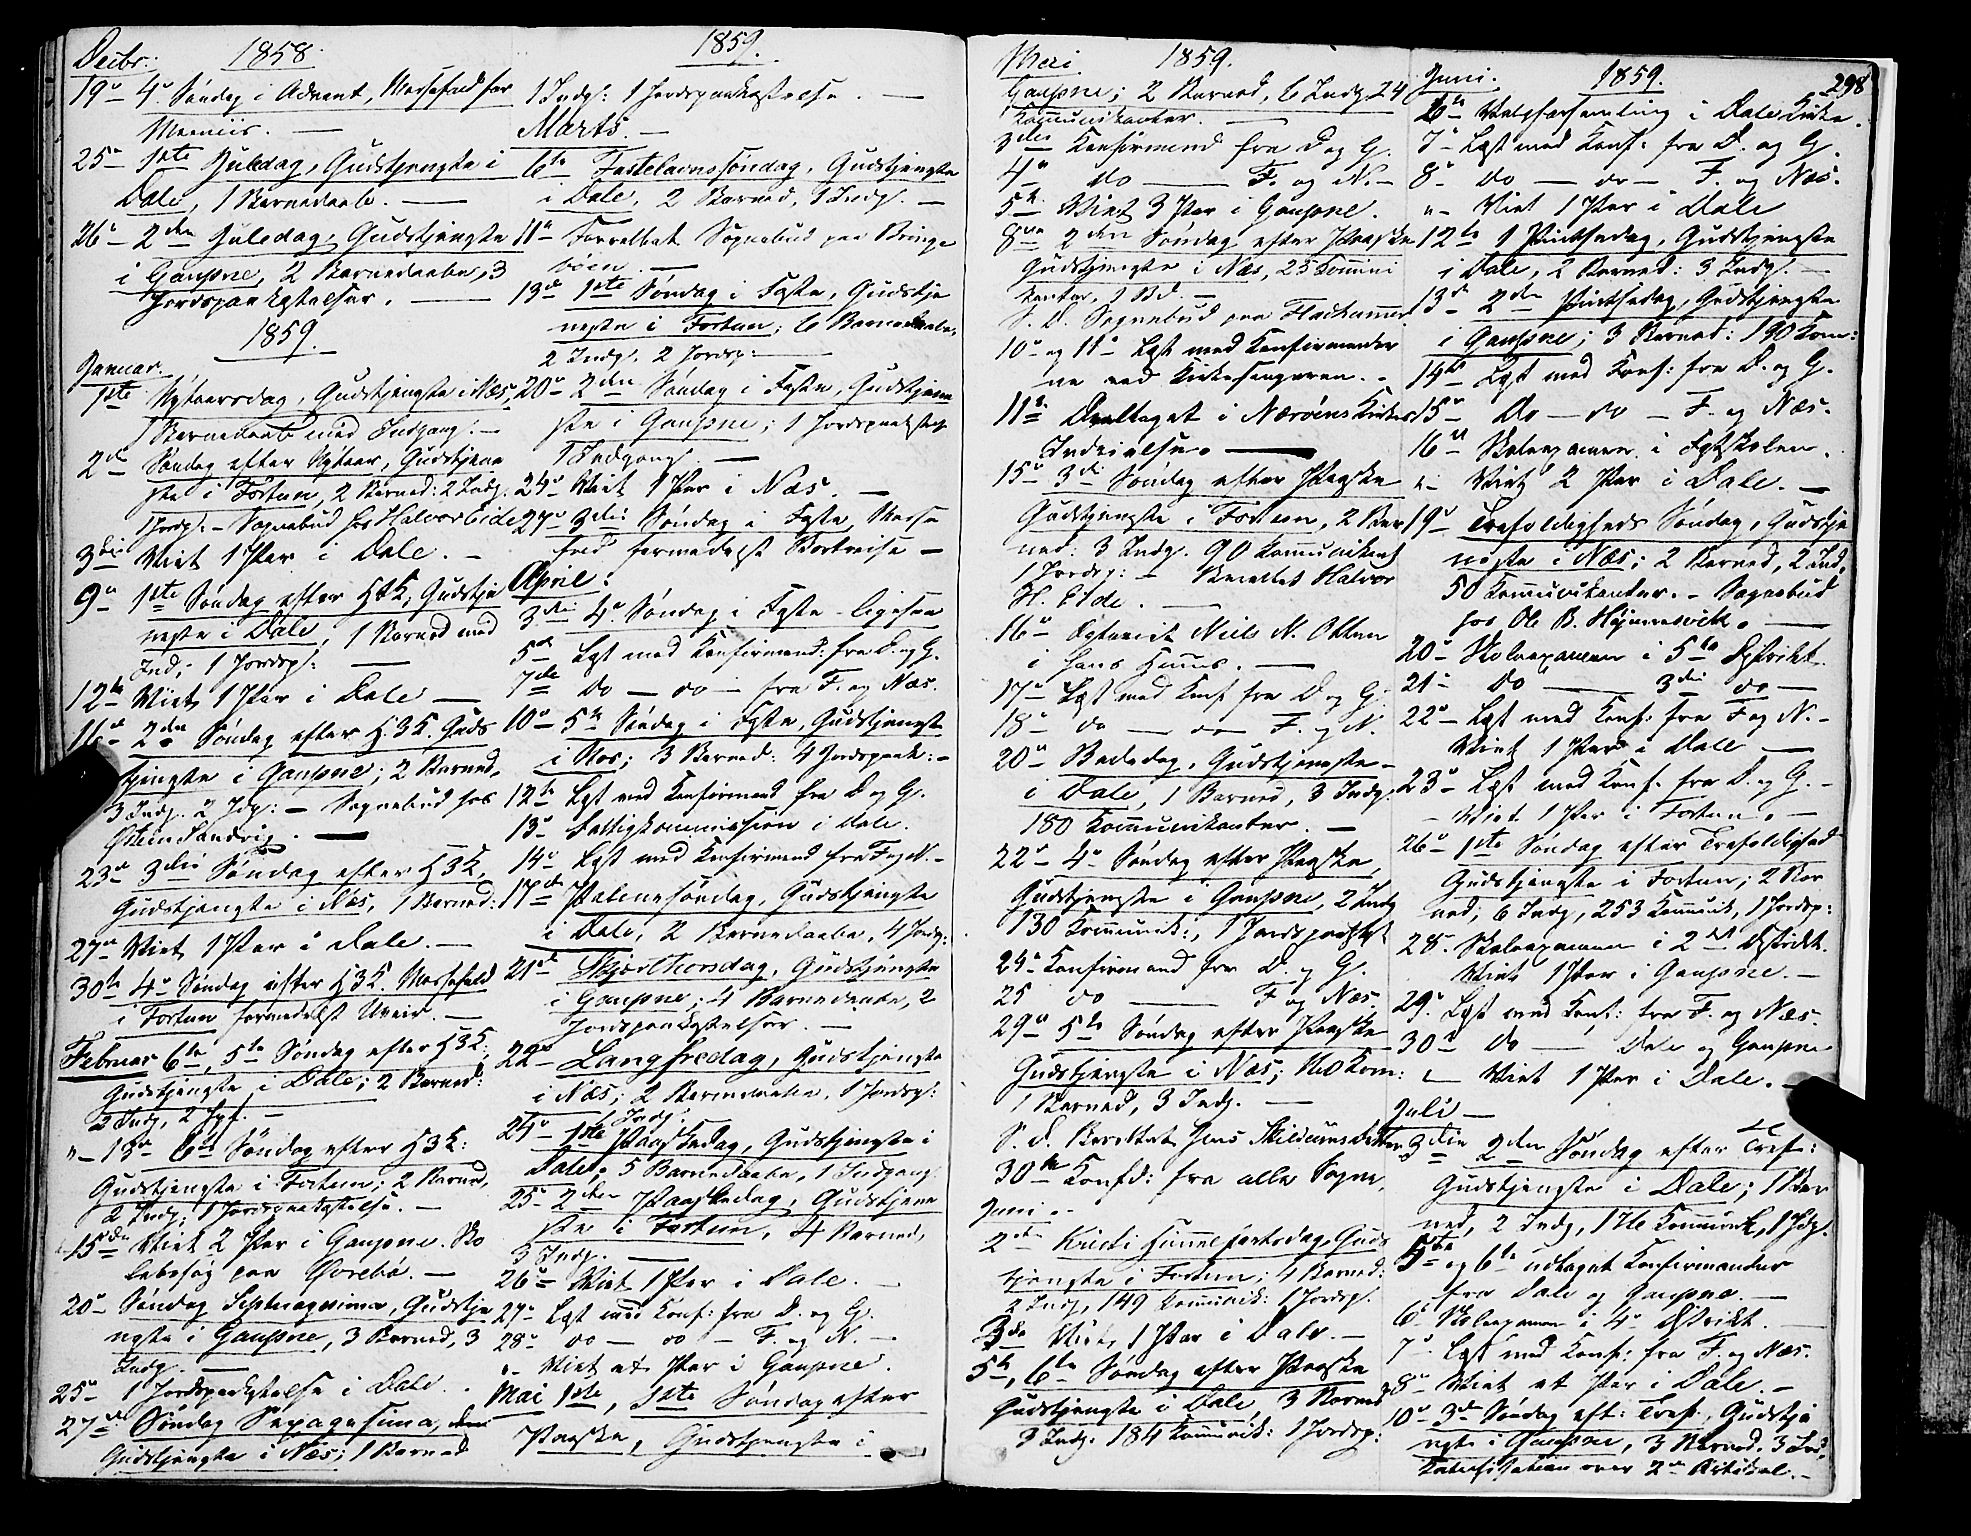 Decbr: 1858.
19de 4de Søndag i Advent, Messefald for
25de 1ste Juledag, Gudstjeneste i
Dale, 1 Barnedaab. —
26de 2den Juledag, Gudstjeneste
i Gaupne, 2 Barnedaaber, 3
Jordspaakastelser. —
1859.
Januar.
1ste Nytaarsdag, Gudstjeneste i Næs,
1 Barnedaab med Indgang. —
2den Søndag efter Nytaar, Gudstjene
ste i Fortun, 2 Barned: 2 Indg:
1 Jordsp: — Sognebud hos Halvor Eide
3die Viet 1 Par i Dale. —
9de 1ste Søndag efter H3K, Gudstje
neste i Dale, 1 Barned med
Ind; 1 Jordsp: —
12te Viet 1 Par i Dale —
16de 2den Søndag efter H.3K. Guds
tjeneste i Gaupne; 2 Barned,
3 Indg. 2 Jdsp: — Sognebud hos
23de 3die Søndag efter H3K,
Gudstjeneste i Næs, 1 Barned:
27de Viet 1 Par i Dale. —
30te 4de Søndag efter H3K. Messefald
i Fortun formedelst Uveir. —
Februar 6te, 5te Søndag efter H3K:
Gudstjeneste i Dale; 2 Barned:
2 Indg, 2 Jpf. —
"— 13de 6te Søndag efter H3K:
Gudstjeneste i Fortun; 2 Barned,
2 Indg; 1 Jordspaakastelse. —
15de Viet 2 Par i Gaupne.
20de Søndag Septuagesima, Gudstje
neste i Gaupne, 3 Barned, 3
Indg. —
25de 1 Jordspaakastelse i Dale.
27de Søndag Sexagesima,
Gudstjeneste i Næs; 1 Barned
1859.
1 Indg: 1 Jordspaakastelse. —
Marts. —
6te Fastelavnssøndag, Gudstjeneste
i Dale, 2 Barned, 1 Indg. —
11te Forrettet Sognebud paa Bringe
bøen. —
13de 1ste Søndag i Faste, Gudstje
neste i Fortun; 6 Barnedaabe,
2 Indg. 2 Jordsp: —
20de 2den Søndag i Faste, Gudstjene
ste i Gaupne; 1 Jordspaakast
1 Indgang. —
24de Viet 1 Par i Næs. —
27de 3die Søndag i Faste, Messe
fald formedelst Bortreise —
April:
3die 4de Søndag i Faste ligesaa
5te Læst med Konfirmand: fra D. og G.
7de do — do — fra F. og Næs.
10de 5te Søndag i Faste, Gudstjeneste
i Næs; 3 Barned: 4 Jordspaak: —
12te Læst med Konfirmand fra D og G.
13de Fattigkommission i Dale.
14de Læst med Konfirmand fra F og N. —
17de Palmesøndag, Gudstjeneste
i Dale, 2 Barnedaabe, 4 Jordsp:
21de Skjærthorsdag, Gudstjeneste
i Gaupne; 4 Barnedaabe, 2
Jordspaakastelser. —
22de Langfredag, Gudstjeneste
i Næs; 2 Barnedaabe, 1 Jordsp:
1 Indg:
24de 1ste Paaskedag, Gudstjeneste i
Dale; 5 Barnedaabe, 1 Indgang.
25de 2den Paaskedag, Gudstjene
ste i Fortun, 4 Barned,
3 Indg. —
26de Viet 1 Par i Dale. —
27de Læst med Konf: fra D. og G.
28de do — do — F. og N. —
"— Viet et Par i Gaupne.
Mai 1ste, 1ste Søndag efter
Paaske, Gudstjeneste i
Mai 1859.
Gaupne; 2 Barned, 6 Indg 24
Kommunikanter. —
3die Konfirmand fra D og G.
4de do — F. og N. —
5te Viet 3 Par i Gaupne.
8de 2den Søndag efter Paaske
Gudstjeneste i Næs, 25 Kommuni
kanter, 1 Bd. —
S. D. Sognebud paa
10de og 11te Læst med Konfirmander
ne ved Kirkesangeren. —
11te Deeltaget i Nærøens Kirkes
Indvielse. —
15de 3die Søndag efter Paaske
Gudstjeneste i Fortun, 2 Bar
ned: 3 Indg. 90 Kommunikant
1 Jordsp: — Berettet Halvor
H. Eide. —
16de Niels N. Ottum
i hans Huus. —
17de Læst med Konf fra D og G.
18de do — do — F. og N.
20de Bededag, Gudstjeneste —
i Dale, 1 Barned, 3 Indg.
180 Kommunikanter. —
22de 4de Søndag efter Paaske,
Gudstjeneste i Gaupne, 2 Indg
130 Kommunik:, 1 Jordspaakst
24de Konfirmand fra D. og G.
25 do — F og Næs.
29de 5te Søndag efter Paaske
Gudstjeneste i Næs; 110 Kom:
1 Barned, 3 Indg. —
S. D. Berettet Jens
30te Konfd: fra alle Sogne,
Juni. —
2den Kristi Himmelfartsdag, Guds
tjeneste i Fortun; 4 Barned:
2 Indg, 149 Kommunik: 1 Jordsp.
3die Viet 1 Par i Dale. —
5te, 6te Søndag efter Paaske
Gudstjeneste i Dale, 3 Barned
3 Indg. 184 Kommunik: 1 Jordsp:
Juni. 1859. 298
6te Valgforsamling i Dale Kirke.
7de Læst med Konf: fra D. og G.
8de do — do — F. og Næs.
"— Viet 1 Par i Dale
12te 1 Pintsedag, Gudstjeneste
i Dale, 2 Barned: 3 Indg. —
13de 2den Pintsedag, Gudstjeneste
i Gaupne; 3 Barned: 190 Kom:
14de Læst med Konf: fra D. og G.
15de Do — do — F. og Næs.
16de Skoleexamen i Fastskolen.
"— Viet 2 Par i Dale. —
19de Trefoldigheds Søndag, Gudstje
neste i Næs; 2 Barned, 2 Ind,
50 Kommunikanter. — Sognebud
hos Ole B.
20de Skoleexamen i 5te Distrikt.
21de do — 3die do —
22de Læst med Konf: fra F og N. —
Viet 1 Par i Dale —
23de Læst med Konf. fra D. og G. —
— Viet 1 Par i Fortun. —
26de 1ste Søndag efter Trefoldighed
Gudstjeneste i Fortun; 2 Bar
ned, 6 Indg, 253 Kommunik, 1 Jordsp:
28. Skoleexamen i 2det Distrikt.
Viet 1 Par i Gaupne. —
29. Læst med Konf: fra F. og Næs.
30te do — Dale og Gaupne
"— Viet 1 Par i Dale. —
Juli —
3die 2den Søndag efter Tref:
Gudstjeneste i Dale; 1 Bar
ned, 2 Indg, 176 Kommunik, 1 Jdsp.
5te og 6te udtaget Konfirmander
fra Dale og Gaupne. —
6te Skoleexamen i 4de Distrikt. —
7de Læst med Konf: fra F. og Næs.
8de Viet et Par i Dale. —
10de 3die Søndag eft: Tref., Gudstje
neste i Gaupne, 3 Barned. 3 Ind,
Katekisation over 2den Artikel. —